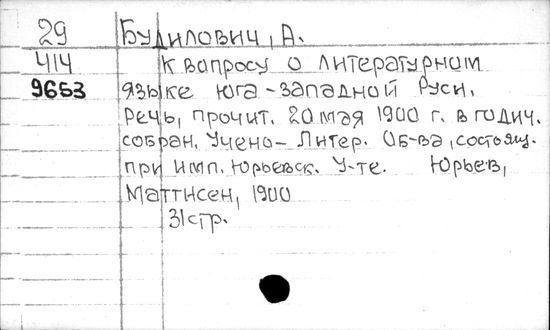 29 Будилович, А.
414 К вопросу о литературном
9653 языке юга-западной Руси.
Речь, прочит. 20 мая 1900 г. в годич.
собран. Учено-Литер. Об-ва, состоящ.
при Имп. Юрьевск. У-те. Юрьев,
Маттисен, 1900
31стр.